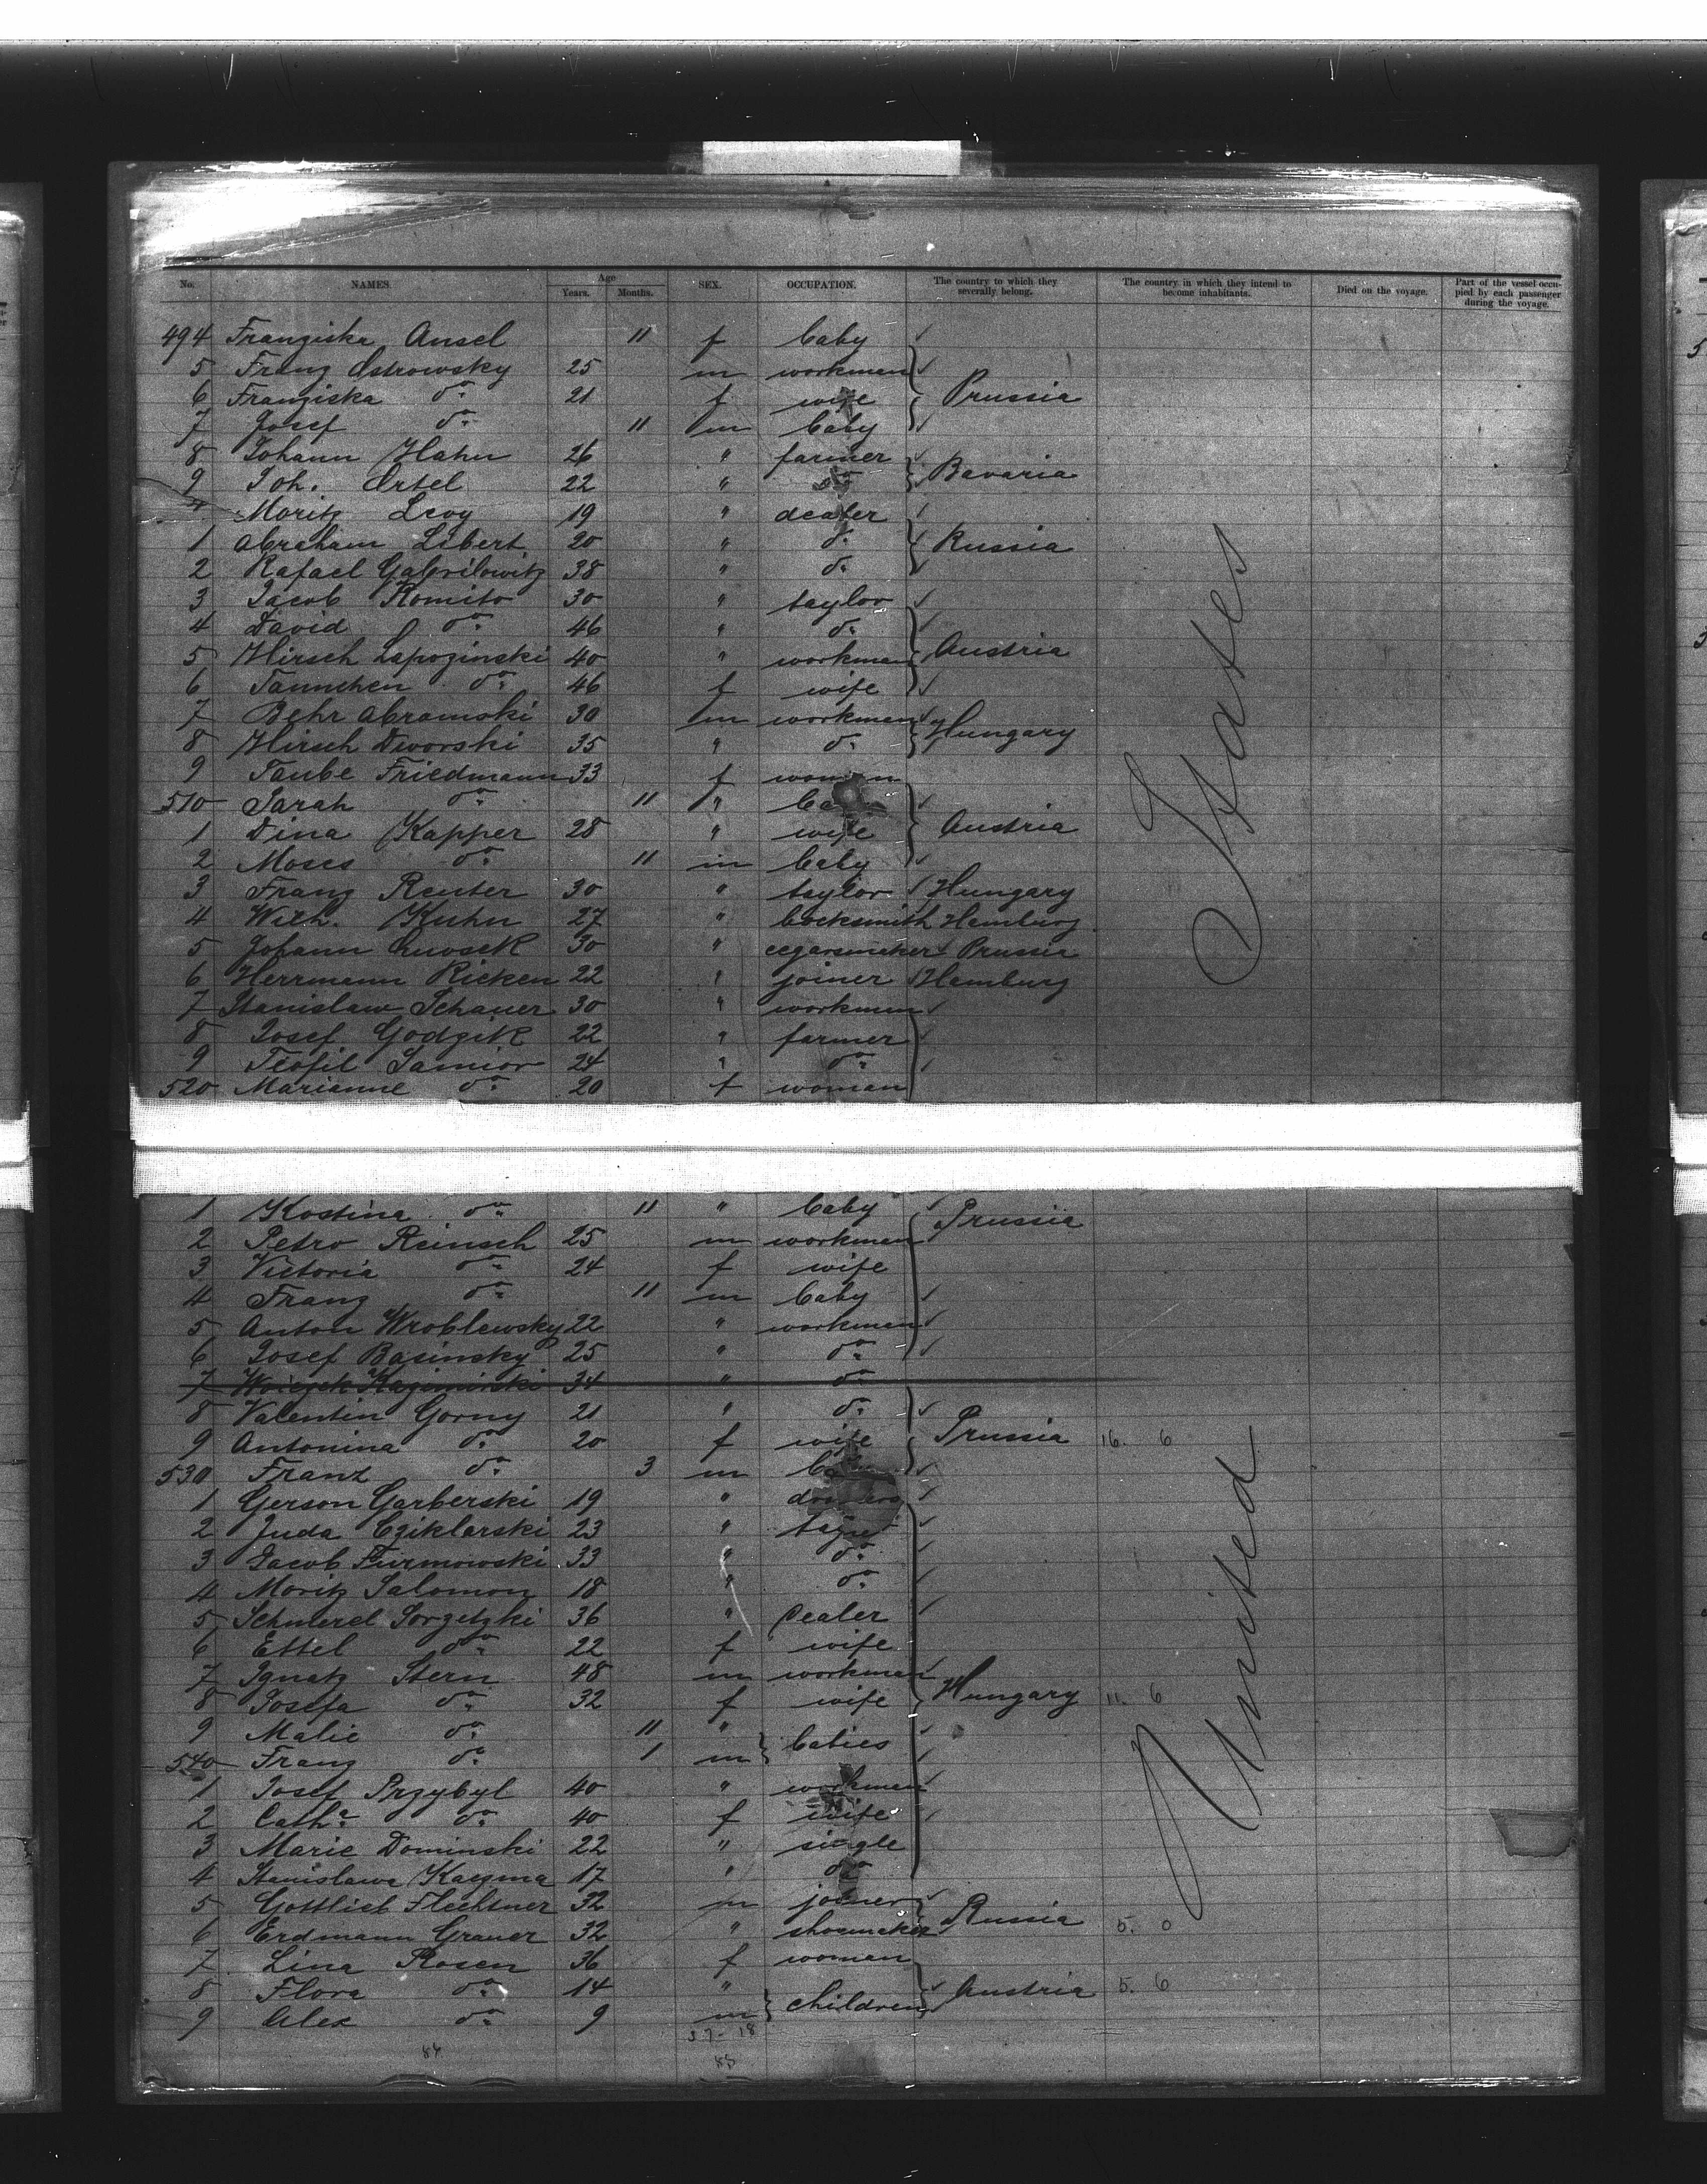 No. NAMES. Age Years. Months. SEX. OCCUPATION. The country to which they severally belong. The country in which they intend to become inhabitants. Died on the voyage. Part of the vessel occupied by each passenger during the voyage.
494 Franziska Ansel 11 f baby
5 Franz Ostrowsky 25 m workman
6 Franziska do 21 f wife Prussia
7 Josef do 11 m baby
8 Johann Hahn 26 " farmer
9 Joh. Ertel 22 " do Bavaria
Moritz Levy 19 " dealer
1 Abraham Libert 20 " do Russia
2 Rafael Gabrilowitz 38 " do
3 Jacob Romito 30 " taylor
4 David do 46 " do
5 Hirsch Lapozinski 40 " workman Austria
6 Tannchen do 46 f wife
7 Behr Abramski 30 m workman Hungary
8 Hirsch Dworski 35 " do
9 Taube Friedmann 33 f woman
510 Sarah do 11 "
1 Dina Kapper 28 " wife Austria
2 Moses do 11 m baby
3 Franz Reuter 30 " taylor Hungary
4 Wilh. Kuhn 27 " locksmith Hamburg
5 Johann 30 " cegarsmaker Prussia
6 Herrmann Ricken 22 " joiner Hamburg
7 Stanislaw Schauer 30 " workman
8 Josef Godzik 22 " farmer
9 Teofil Samior 24 " do
520 Marianne do 20 f woman
1 Kostina do 11 " baby Prussia
2 Petro Reinsch 25 m workman
3 Victoria do 24 f wife
4 Franz do 11 m baby
5 Anton Wroblewsky 22 " workman
6 Josef Basinsky 25 " do
7 Kazimirski 34 " do
8 Valentin Gorny 21 " do
9 Antonina do 20 f wife Prussia 16. 6
530 Franz do 3 m
1 Gerson Garberski 19 "
2 Juda Cziklarski 23 "
3 Jacob Furmowski 33 " do
4 Moritz Salomon 18 " do
5 Schmerel Sorgetzki 36 " Dealer
6 Ettel do 22 f wife
7 Ignatz Stern 48 m workman
8 Josefa do 32 f wife Hungary 11. 6
9 Malie do 11 " babies
540 Franz do 1 m
1 Josef Przybyl 40 " workman
2 Cath. do 40 f wife
3 Marie Dominski 22 " single
4 Stanislawa Kaczma 17 " do
5 Gottlieb Flechtner 32 m joiner
6 Erdmann Grauer 32 " shoemaker Russia 5. 0
7 Lina Rosen 36 f woman
8 Flora do 14 " children Austria 5. 6
9 Alex do 9 m
37-18
84
85
United States